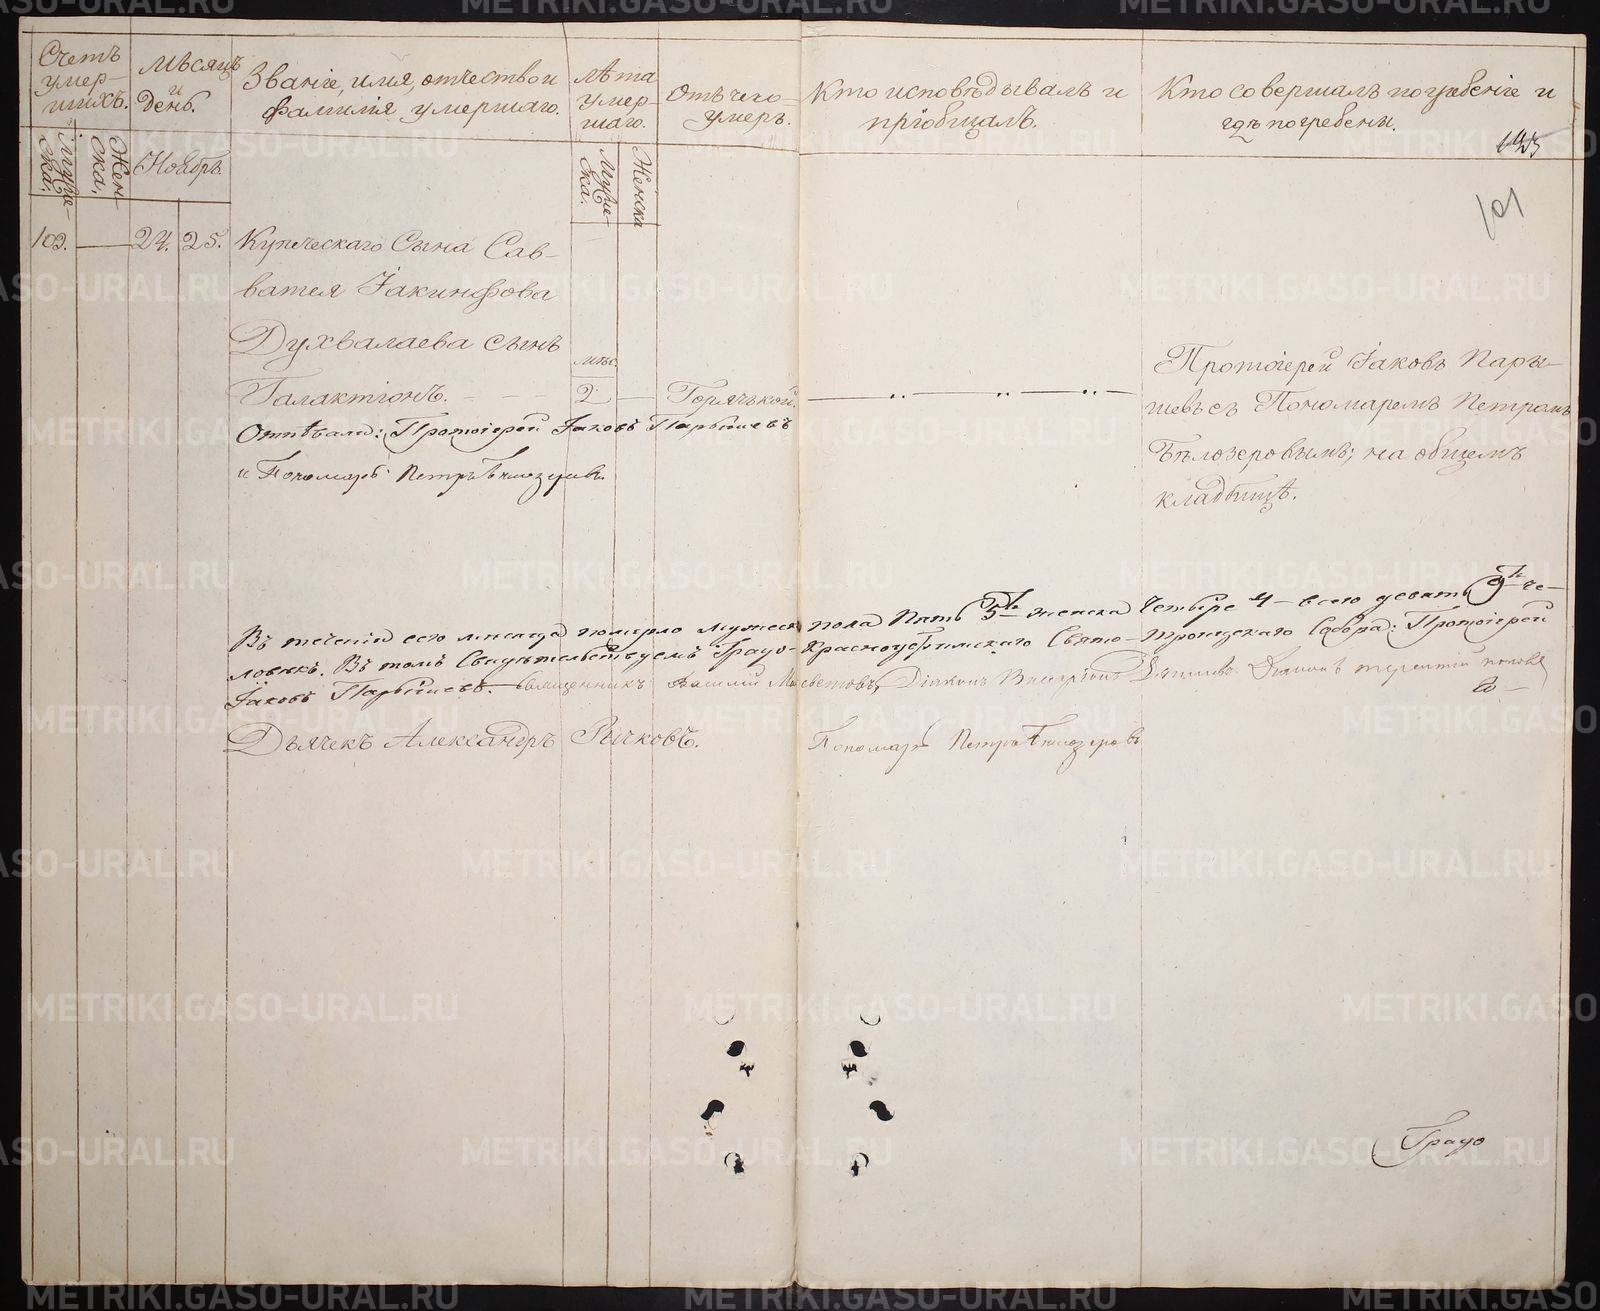 Счетъ умер-
шихъ.
Мѣсяцъ
и
День.
Званіе, имя, отчество и
фамилія умершаго.
Лѣта
умер-
шаго.
Отъ чего
умеръ.
Кто исповѣдывалъ и
пріобщалъ.
Кто совершалъ погребеніе и
гдѣ погребены.
145
101
Муже-
ска.
Жен-
ска.
Ноябрь.
Муже-
ска.
Женска
102.
24.
25.
Купеческаго Сына Сав-
ватея Іакинфова
Духвалаева сынъ
Галактіонъ.
мѣс.
2
Горячькой.
Протоіерей Іаковъ Пары-
шевъ съ Пономаремъ Петромъ
Бѣлозеровымъ; на общемъ
кладбищѣ.
Отпѣвали: Протоіерей Іаковъ Парышевъ
и Пономарь Петръ Бѣлозеровъ.
Въ теченіи сего мѣсяца померло мужеска пола Пять 5 женска Четыре 4 всего девять 9 че-
ловѣкъ. Въ томъ Свидѣтельствуемъ Градо-Красноуфимскаго Свято-Троицкаго Собора: Протоіерей
Іаковъ Парышевъ. Священникъ Василій Діаконъ Діаконъ Терентій Попов
Дьячекъ Александръ Рычковъ. Пономарь Петръ Бѣлозеровъ
Градо
METRIKI.GASO-URAL.RU